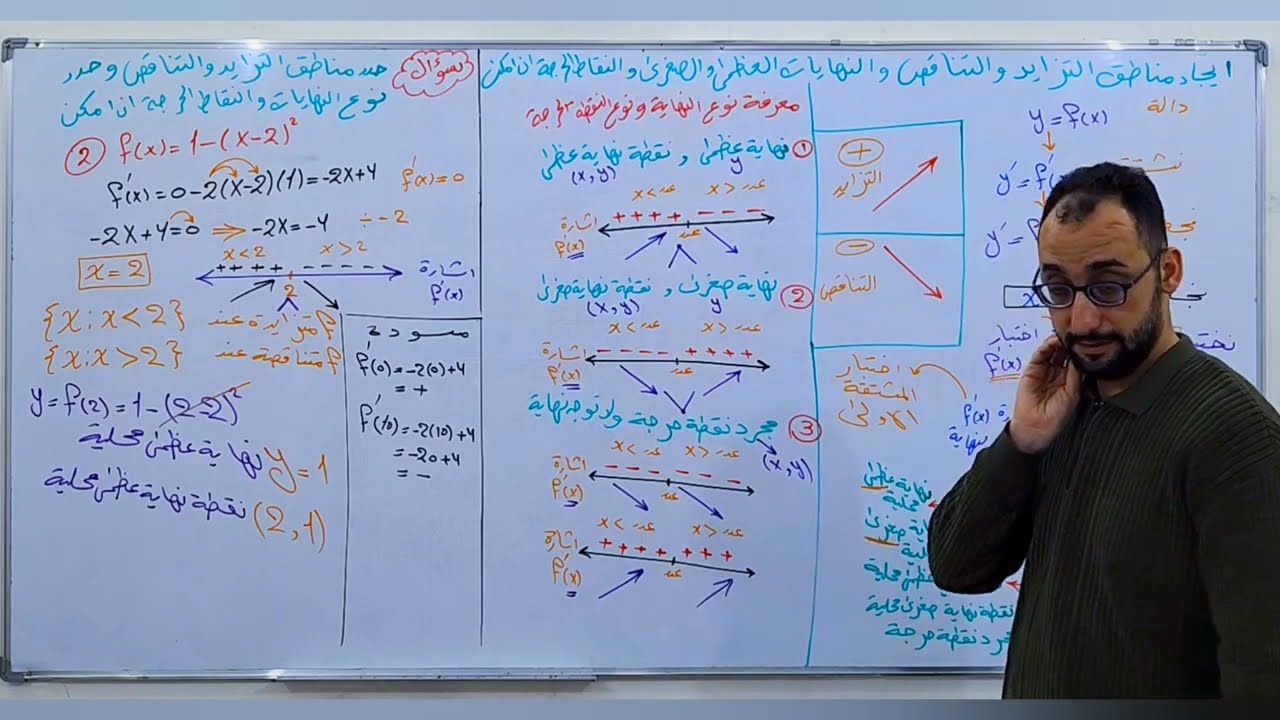 ايجاد مناطق التزايد والتناقص والنهايات العظمى والصغرى والنقاط الحرجة ان امكن
دالة
y = f(x)
نختبر
اختبار
f'(x)
+
التزايد
-
التناقص
اختبار
المشتقة
الاولى
f'(x)
نهاية عظمى
محلية
صغرى
نقطة نهاية صغرى محلية
نقطة حرجة
معرفة نوع النهاية ونوع النقطة الحرجة
① نهاية عظمى و نقطة نهاية عظمى
y
(x, y)
x < عدد x > عدد
اشارة f'(x) + + + + - - -
عدد
② نهاية صغرى و نقطة نهاية صغرى
y
(x, y)
x < عدد x > عدد
اشارة f'(x) - - - - + + + +
عدد
③ مجرد نقطة حرجة ولا توجد نهاية
(x, y)
x < عدد x > عدد
اشارة f'(x) - - - - - - -
عدد
x < عدد x > عدد
اشارة f'(x) + + + + + + +
عدد
سؤال
حدد مناطق التزايد والتناقص وحدد
نوع النهايات والنقاط الحرجة ان امكن
② f(x) = 1 - (x-2)²
f'(x) = 0 - 2(x-2)(1) = -2x+4 f'(x) = 0
-2x+4=0 ⇒ -2x = -4 ÷ -2
x = 2
x < 2 x > 2
+ + + + - - - - - اشارة f'(x)
2
f متزايدة عند {x: x < 2}
f متناقصة عند {x: x > 2}
y = f(2) = 1 - (2-2)²
y = 1 نهاية عظمى محلية
(2, 1) نقطة نهاية عظمى محلية
مسودة
f'(0) = -2(0)+4
= +
f'(10) = -2(10)+4
= -20+4
= -